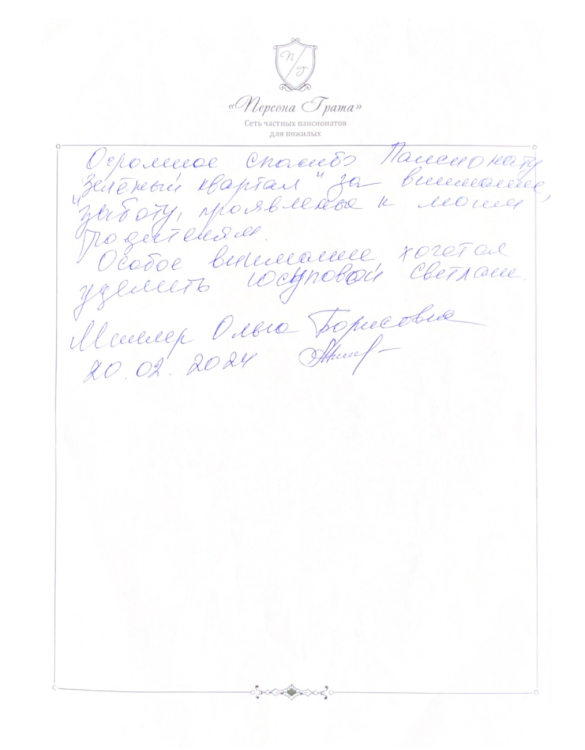 П
Г
«Персона Грата»
Сеть частных пансионатов
для пожилых
Огромное спасибо Пансионату
"Зелёный квартал" за внимание,
заботу, проявленые к моим
родителям.
Особое внимание хочется
уделить Юсуповой Светлане.
Миллер Ольга Борисовна
20.02.2024